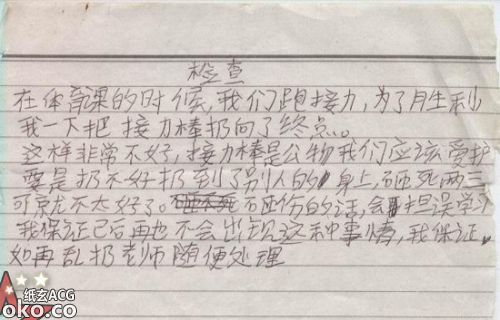 检查
在体育课的时候,我们跑接力,为了月生利
我一下把 接力棒扔向了终点。。
这样非常不好,接力棒是公物我们应该爱护
要是扔不好扔到了别人的身上,砸死两三
可就不太好了。砸伤的话,会担误学习
我保证已后再也不会出现这种事情,我保证
如再乱扔老师随便处理
纸玄ACG
oko.co